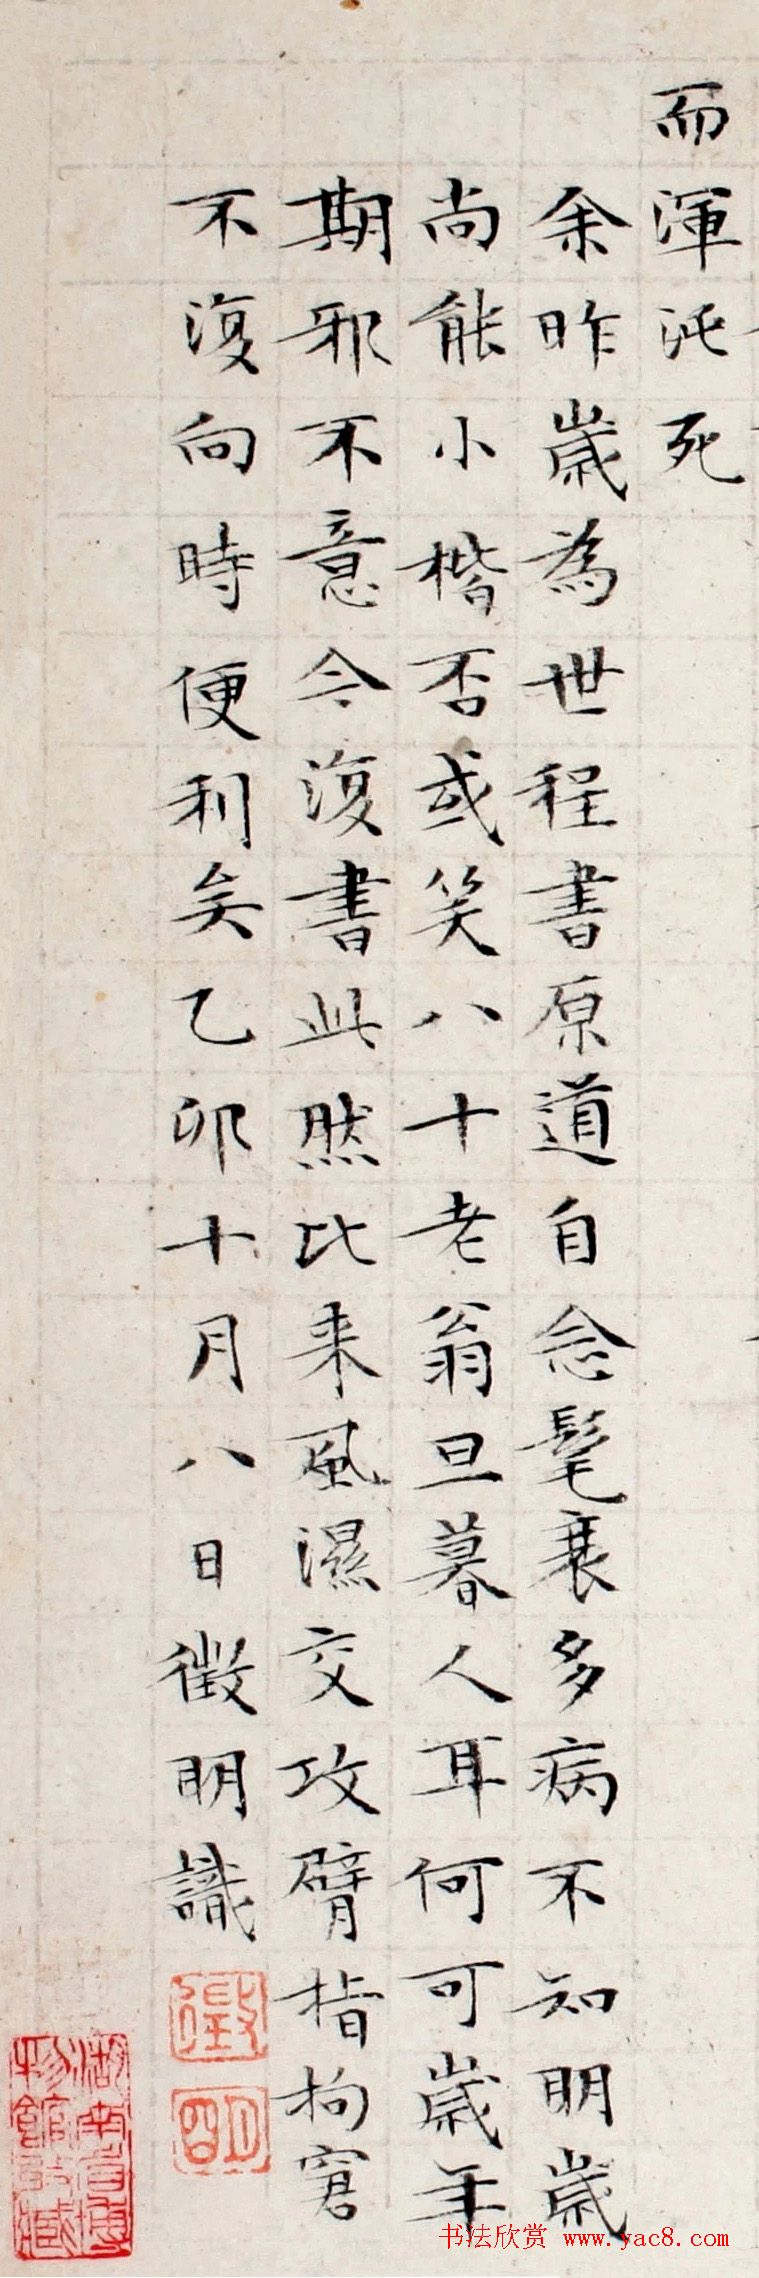 而渾沌死
余昨歲為世程書原道自念髦衰多病不知明歲
尚能小楷否或笑八十老翁旦暮人耳何可歲年
期邪不意今復書此然比来風濕交攻臂指拘窘
不復向時便利矣乙卯十月八日徵明識
徵
明
湖南省博
物館收藏
书法欣赏 www.yac8.com